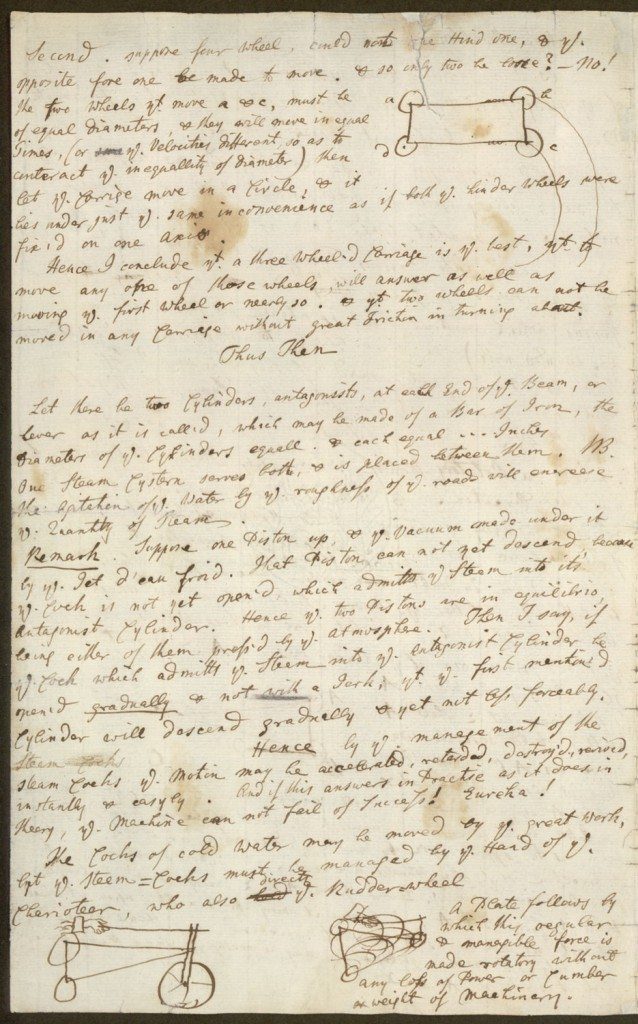 Second. suppose four Wheel, could not one Hind one, & yᵉ.
opposite fore one be made to move. & so only two be loose? – No!
the two Wheels yᵗ. move a & c, must be
of equal Diameters, & they will move in equal
Times, (or yᵉ. Velocities different, so as to
conteract yᵉ. inequallity of diameter) then
let yᵉ. Carrige move in a Circle, & it
lies under just yᵉ. same inconvenience as if both yᵉ. hinder Wheels were
fix'd on one axis.
a b
d c
Hence I conclude yᵗ. a three Wheel'd Carriage is yᵉ. best, yᵗ. to
move any one of those wheels, will answer as well as
moving yᵉ. first wheel or nearly so. & yᵗ. two wheels can not be
moved in any Carriage without great Friction in turning about.
Thus Then
Let there be two Cylinders, antagonists, at each End of yᵉ. Beam, or
Lever as it is call'd, which may be made of a Bar of Iron, the
Diameters of yᵉ. Cylinders equall. & each equal ... Inches
One Steam Cystern serves both, & is placed between them. NB.
the agitation of yᵉ. Water by yᵉ. roughness of yᵉ. road will encrease
yᵉ. Quantity of Steam.
Remark. Suppose one Piston up, & yᵉ. Vacuum made under it
by yᵉ. Jet d'eau froid. That Piston can not yet descend, because
yᵉ. Cock is not yet open'd which admitts yᵉ Steam into its
Antagonist Cylinder. Hence yᵉ. two Pistons are in equilibrio,
being either of them press'd by yᵉ. atmosphere. Then I say, if
yᵉ Cock which admitts yᵉ. Steam into yᵉ. antagonist Cylinder be
open'd gradually & not with a Jerk, yᵗ. yᵉ. first mention'd
Cylinder will descend gradually & yet not less forceably.
Steam Cocks Hence by yᵉ. management of the
steam Cocks yᵉ. Motion may be accelerated, retarded, destroy'd, revived,
instantly & easyly. And if this answers in Practise as it does in
theory, yᵉ. Machine can not fail of Success! Eureka!
The Cocks of cold water may be moved by yᵉ. great Work,
but yᵉ. Steem=Cocks must be managed by yᵉ. Hand of yᵉ.
Charioteer, who also directs yᵉ. Rudder-wheel
A Plate follows by
which this regular
& managible force is
made rotatory without
any loss of Power or Cumber
or weight of Machinery.